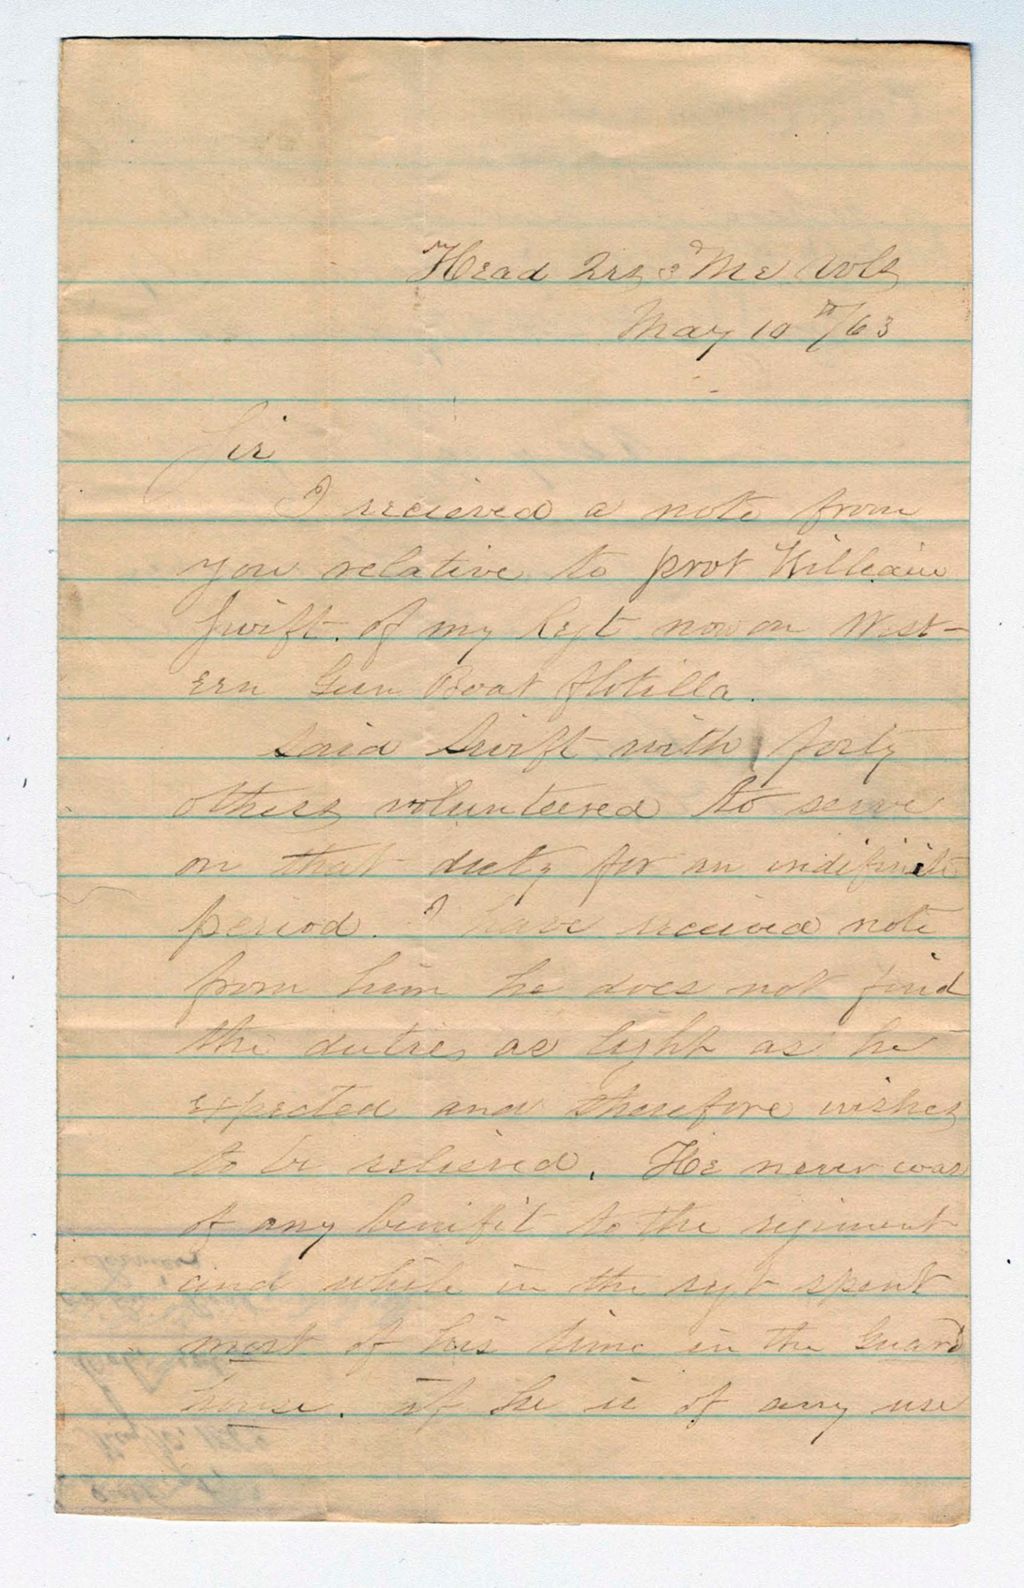 Head Qrs 2d Me Vols
May 10th/63
Sir
I recieved a note from
you relative to prvt William
Swift. of my Regt now on West-
ern Gun Boat flotilla.
Said Swift with forty
others volunteered to serve
on that duty for an indifinite
period. I have received note
from him he does not find
the duties as light as he
expected and therefore wishes
to be relieved. He never was
of any benifit to the regiment
and while in the regt spent
most of his time in the Guard
house. if he is of any use